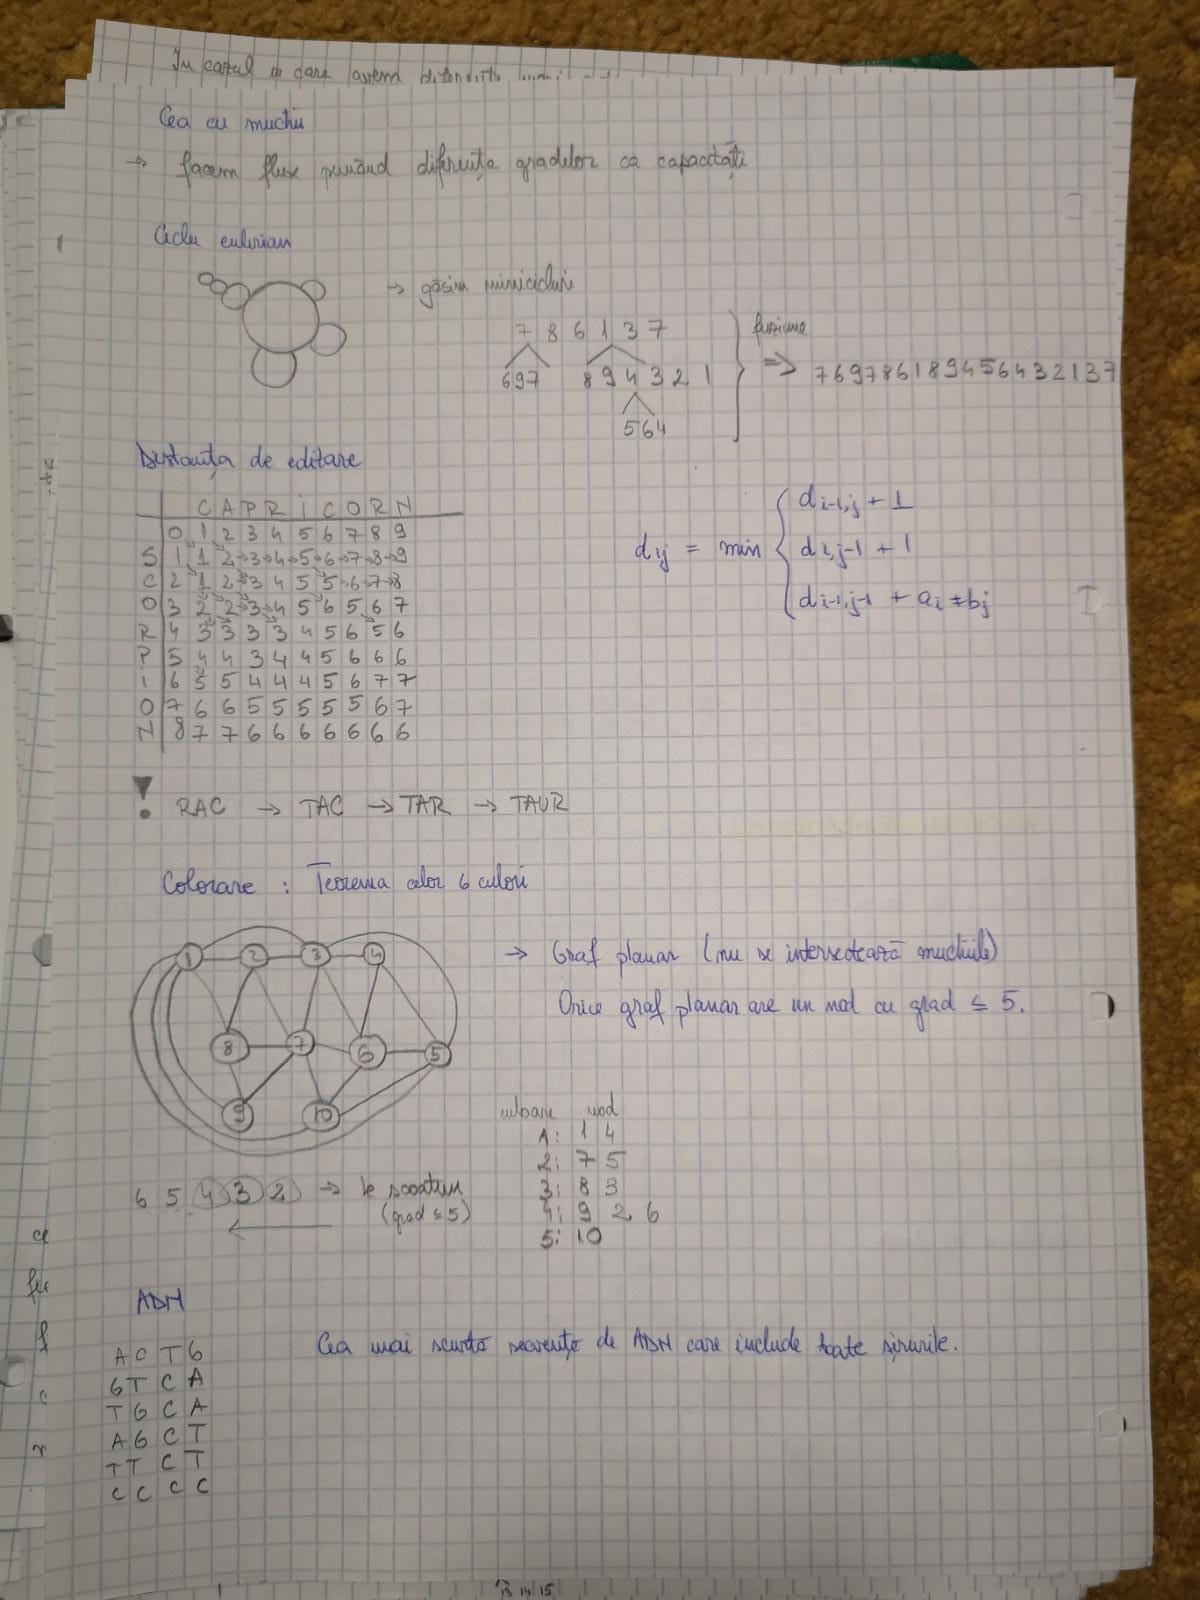 In cazul in care avem
Cea cu muchii
→ facem flux punând diferența gradelor ca capacități
Ciclu eulerian
→ găsim minicicluri
7 8 6 1 3 7
697 8 9 4 3 2 1
564
fuziune
=> 7 6 9 7 8 6 1 8 9 4 5 6 4 3 2 1 3 7
Distanța de editare
C A P R i C O R N
0 1 2 3 4 5 6 7 8 9
S 1 1 2→3→4→5→6→7→8→9
C 2 1 2→3 4 5 5→6→7→8
O 3 2 2→3→4 5 6 5 6 7
R 4 3 3 3 3 4 5 6 5 6
P 5 4 4 3 4 4 5 6 6 6
i 6 5 5 4 4 4 5 6 7 7
O 7 6 6 5 5 5 5 5 6 7
N 8 7 7 6 6 6 6 6 6 6
di,j = min
di-1,j + 1
di,j-1 + 1
di-1,j-1 + ai ≠ bj
! RAC → TAC → TAR → TAUR
Colorare : Teorema celor 6 culori
1 2 3 4
8 7 6 5
9 10
→ Graf planar (nu se intersectează muchiile)
Orice graf planar are un nod cu grad ≤ 5.
culoare nod
1: 1 4
2: 7 5
3: 8 3
4: 9 2 6
5: 10
6 5 4 3 2 → le scoatem
(grad ≤ 5)
ADN
Cea mai scurtă secvență de ADN care include toate șirurile.
A C T G
G T C A
T G C A
A G C T
T T C T
C C C C
13 14 15